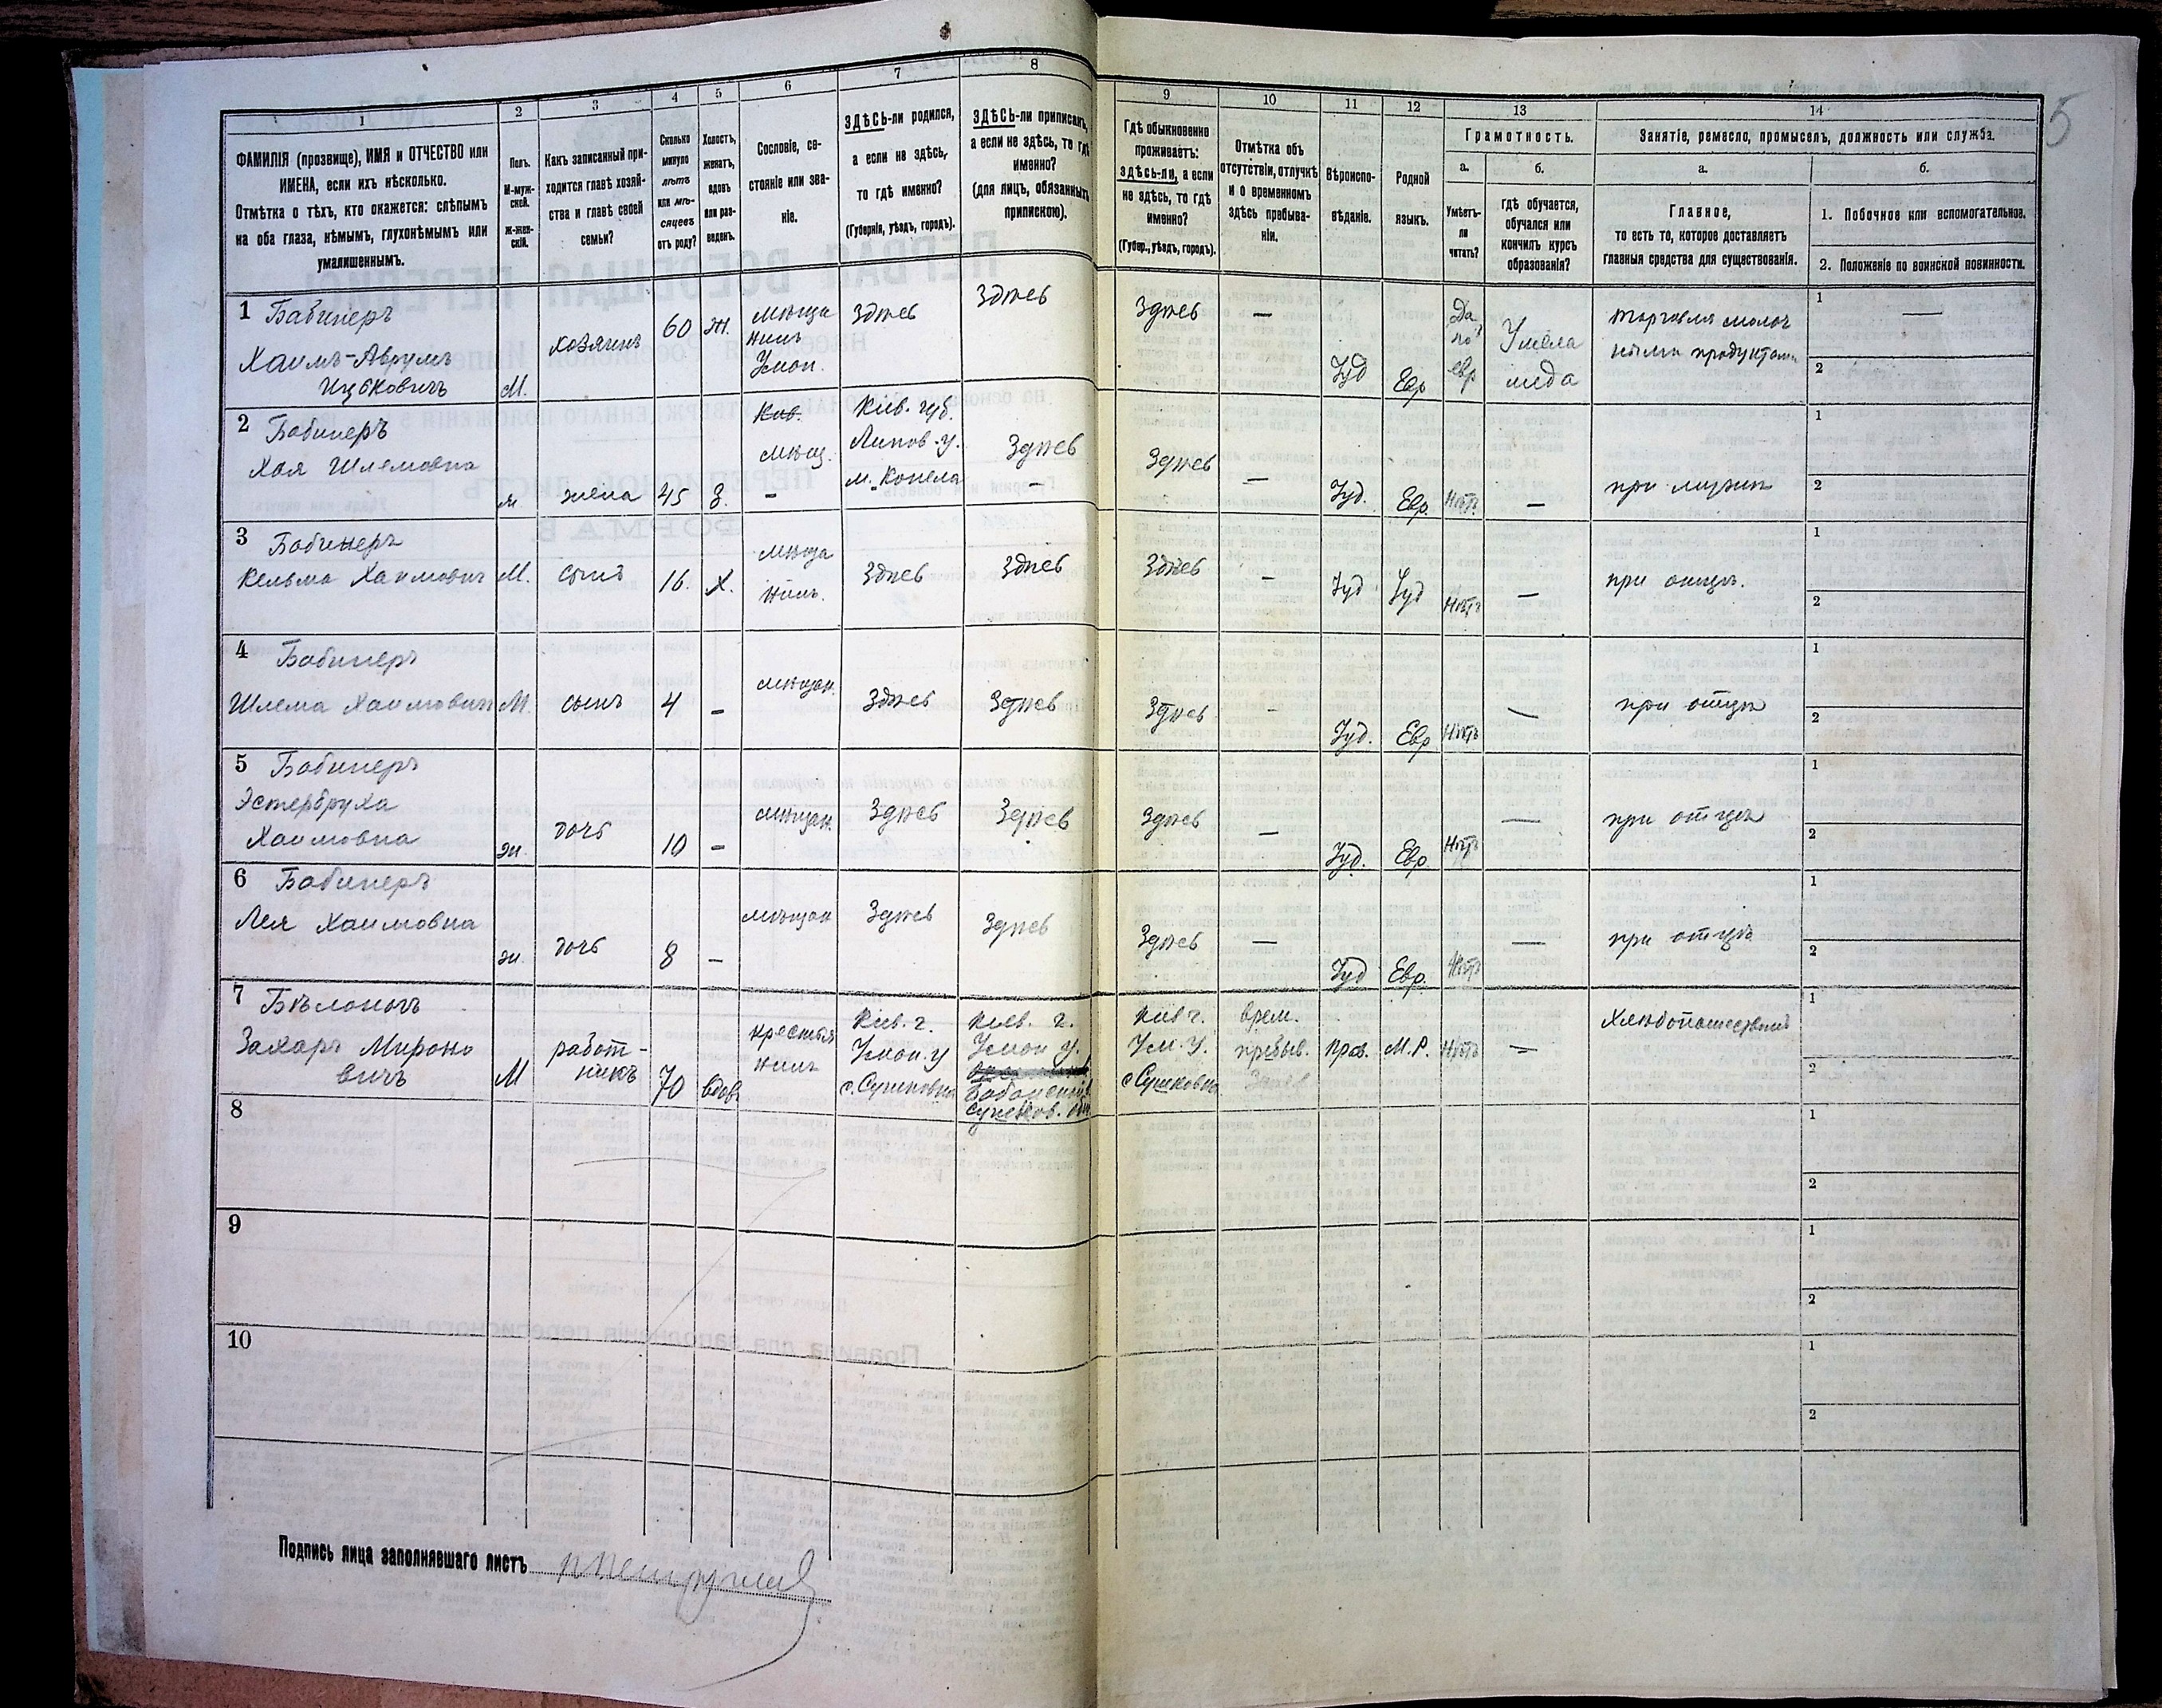 5
1
2
3
4
5
6
7
8
9
10
11
12
13
14
ФАМИЛІЯ (прозвище), ИМЯ и ОТЧЕСТВО или
ИМЕНА, если ихъ нѣсколько.
Отмѣтка о тѣхъ, кто окажется: слѣпымъ
на оба глаза, нѣмымъ, глухонѣмымъ или
умалишеннымъ.
Полъ.
М-муж-
ской.
Ж-жен-
скій.
Какъ записанный при-
ходится главѣ хозяй-
ства и главѣ своей
семьи?
Сколько
минуло
лѣтъ
или мѣ-
сяцевъ
отъ роду?
Холостъ,
женатъ,
вдовъ
или раз-
веденъ.
Сословіе, со-
стояніе или зва-
ніе.
ЗДѢСЬ-ли родился,
а если не здѣсь,
то гдѣ именно?
(Губернія, уѣздъ, городъ).
ЗДѢСЬ-ли приписанъ,
а если не здѣсь, то гдѣ
именно?
(для лицъ, обязанныхъ
припискою).
Гдѣ обыкновенно
проживаетъ:
здѣсь-ли, а если
не здѣсь, то гдѣ
именно?
(Губер., уѣздъ, городъ).
Отмѣтка объ
отсутствіи, отлучкѣ
и о временномъ
здѣсь пребыва-
ніи.
Вѣроиспо-
вѣданіе.
Родной
языкъ.
Грамотность.
а.
Умѣетъ-
ли
читать?
б.
гдѣ обучается,
обучался или
кончилъ курсъ
образованія?
Занятіе, ремесло, промыселъ, должность или служба.
а.
Главное,
то есть то, которое доставляетъ
главныя средства для существованія.
б.
1. Побочное или вспомогательное.
2. Положеніе по воинской повинности.
1 Бабинеръ
Хаимъ-Аврумъ
Ицьковичъ
М.
хозяинъ
60
ж.
мѣща
нинъ
Уман.
Здѣсь
Здѣсь
Здѣсь
—
Іуд
Евр
Да
по
евр
У мела
меда
торговля молоч
ными продуктами
1 —
2
2 Бабинеръ
Хая Шлемовна
жена
45
З.
Кив.
мѣщ.
–
Кив. губ.
Липов. у.
м. Конела
Здѣсь
–
Здѣсь
—
Іуд.
Евр.
Нѣтъ
—
при мужѣ
1
2
3 Бабинеръ
Кельма Хаимовичъ
М.
сынъ
16.
Х.
мѣща
нинъ.
Здѣсь
Здѣсь
Здѣсь
–
Іуд
Іуд
Нѣтъ
—
при отцѣ.
1
2
4 Бабинеръ
Шлема Хаимовичъ
М.
сынъ
4
–
мѣщан.
Здѣсь
Здѣсь
Здѣсь
–
Іуд.
Евр
Нѣтъ
—
при отцѣ
1
2
5 Бабинеръ
Эстербруха
Хаимовна
ж.
дочь
10
–
мѣщан.
Здѣсь
Здѣсь
Здѣсь
—
Іуд.
Евр.
Нѣтъ
—
при отцѣ
1
2
6 Бабинеръ
Лея Хаимовна
ж.
дочь
8
–
мѣщан
Здѣсь
Здѣсь
Здѣсь
—
Іуд
Евр.
Нѣтъ
—
при отцѣ
1
2
7 Бѣлоногъ
Захаръ Мироно
вичъ
М
работ-
никъ
70
вдов
крестья
нинъ
Кив. г.
Уман. у
с. Сушковка
Киев. г.
Уман у.
Кив г.
Ум. У.
с Сушковка
врем.
пребыв.
Прав.
М.Р.
Нѣтъ
—
Хлѣбопашествомъ
1
2
8
1
2
9
1
2
10
1
2
Подпись лица заполнявшаго листъ